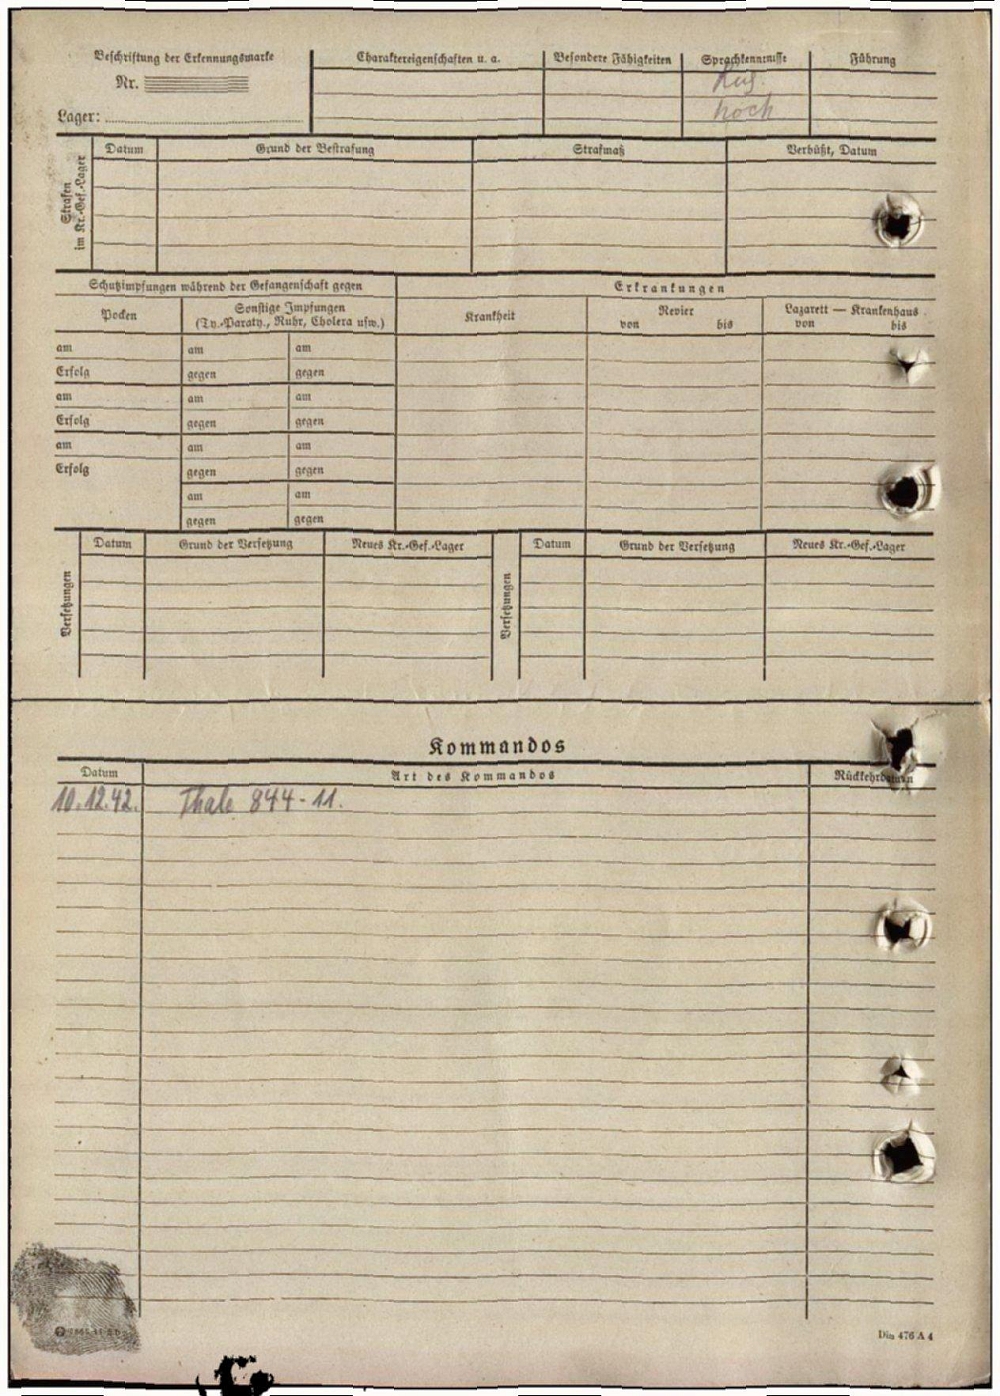 Beschriftung der Erkennungsmarke
Nr.
Lager:
Charaktereigenschaften u. a.
Besondere Fähigkeiten
Sprachkenntnisse
Führung
hoch
Strafen
im Kr.-Gef.-Lager
Datum
Grund der Bestrafung
Strafmaß
Verbüßt, Datum
Schutzimpfungen während der Gefangenschaft gegen
Erkrankungen
Pocken
Sonstige Impfungen
(Ty.-Paraty., Ruhr, Cholera usw.)
Krankheit
Revier
von bis
Lazarett — Krankenhaus
von bis
am am am
Erfolg gegen gegen
am am am
Erfolg gegen gegen
am am am
Erfolg gegen gegen
am am
gegen gegen
Versetzungen
Datum
Grund der Versetzung
Neues Kr.-Gef.-Lager
Versetzungen
Datum
Grund der Versetzung
Neues Kr.-Gef.-Lager
Kommandos
Datum
Art des Kommandos
Rückkehrdatum
10.12.42. Thale 844-11.
Din 476 A 4